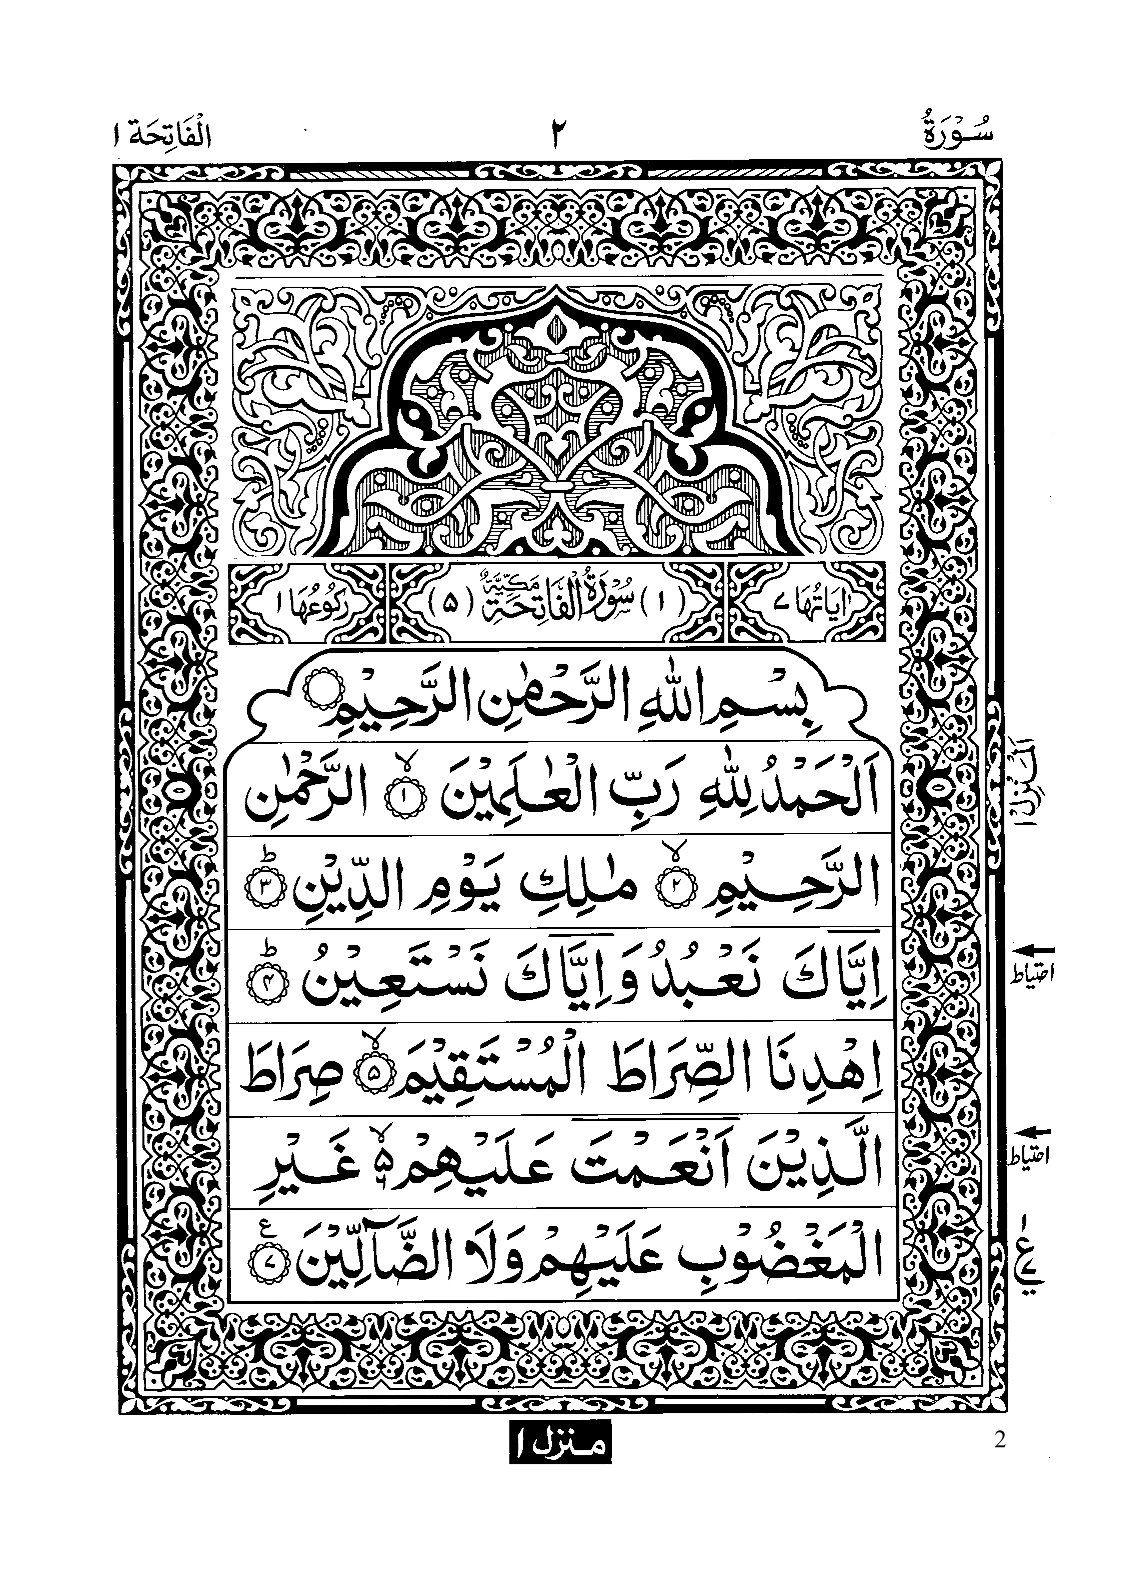 سُوْرَةُ ٢ اَلْفَاتِحَة ١
اٰيَاتُهَا ٧ (١) سُوْرَةُ الْفَاتِحَةِ مَكِّيَّةٌ (٥) رُكُوْعُهَا ١
بِسْمِ اللّٰهِ الرَّحْمٰنِ الرَّحِيْمِ
اَلْحَمْدُ لِلّٰهِ رَبِّ الْعٰلَمِيْنَ ۙ ١ الرَّحْمٰنِ
الرَّحِيْمِ ۙ ٢ مٰلِكِ يَوْمِ الدِّيْنِ ؕ ٣
اِيَّاكَ نَعْبُدُ وَاِيَّاكَ نَسْتَعِيْنُ ؕ ۴
اِهْدِنَا الصِّرَاطَ الْمُسْتَقِيْمَ ۙ ۵ صِرَاطَ
الَّذِيْنَ اَنْعَمْتَ عَلَيْهِمْ ۙ۬ ۶ غَيْرِ
الْمَغْضُوْبِ عَلَيْهِمْ وَلَا الضَّآلِّيْنَ ع ٧
اَلْمَنْزِل ١
احتیاط
احتیاط
١
ع
٧
منزل ١
2